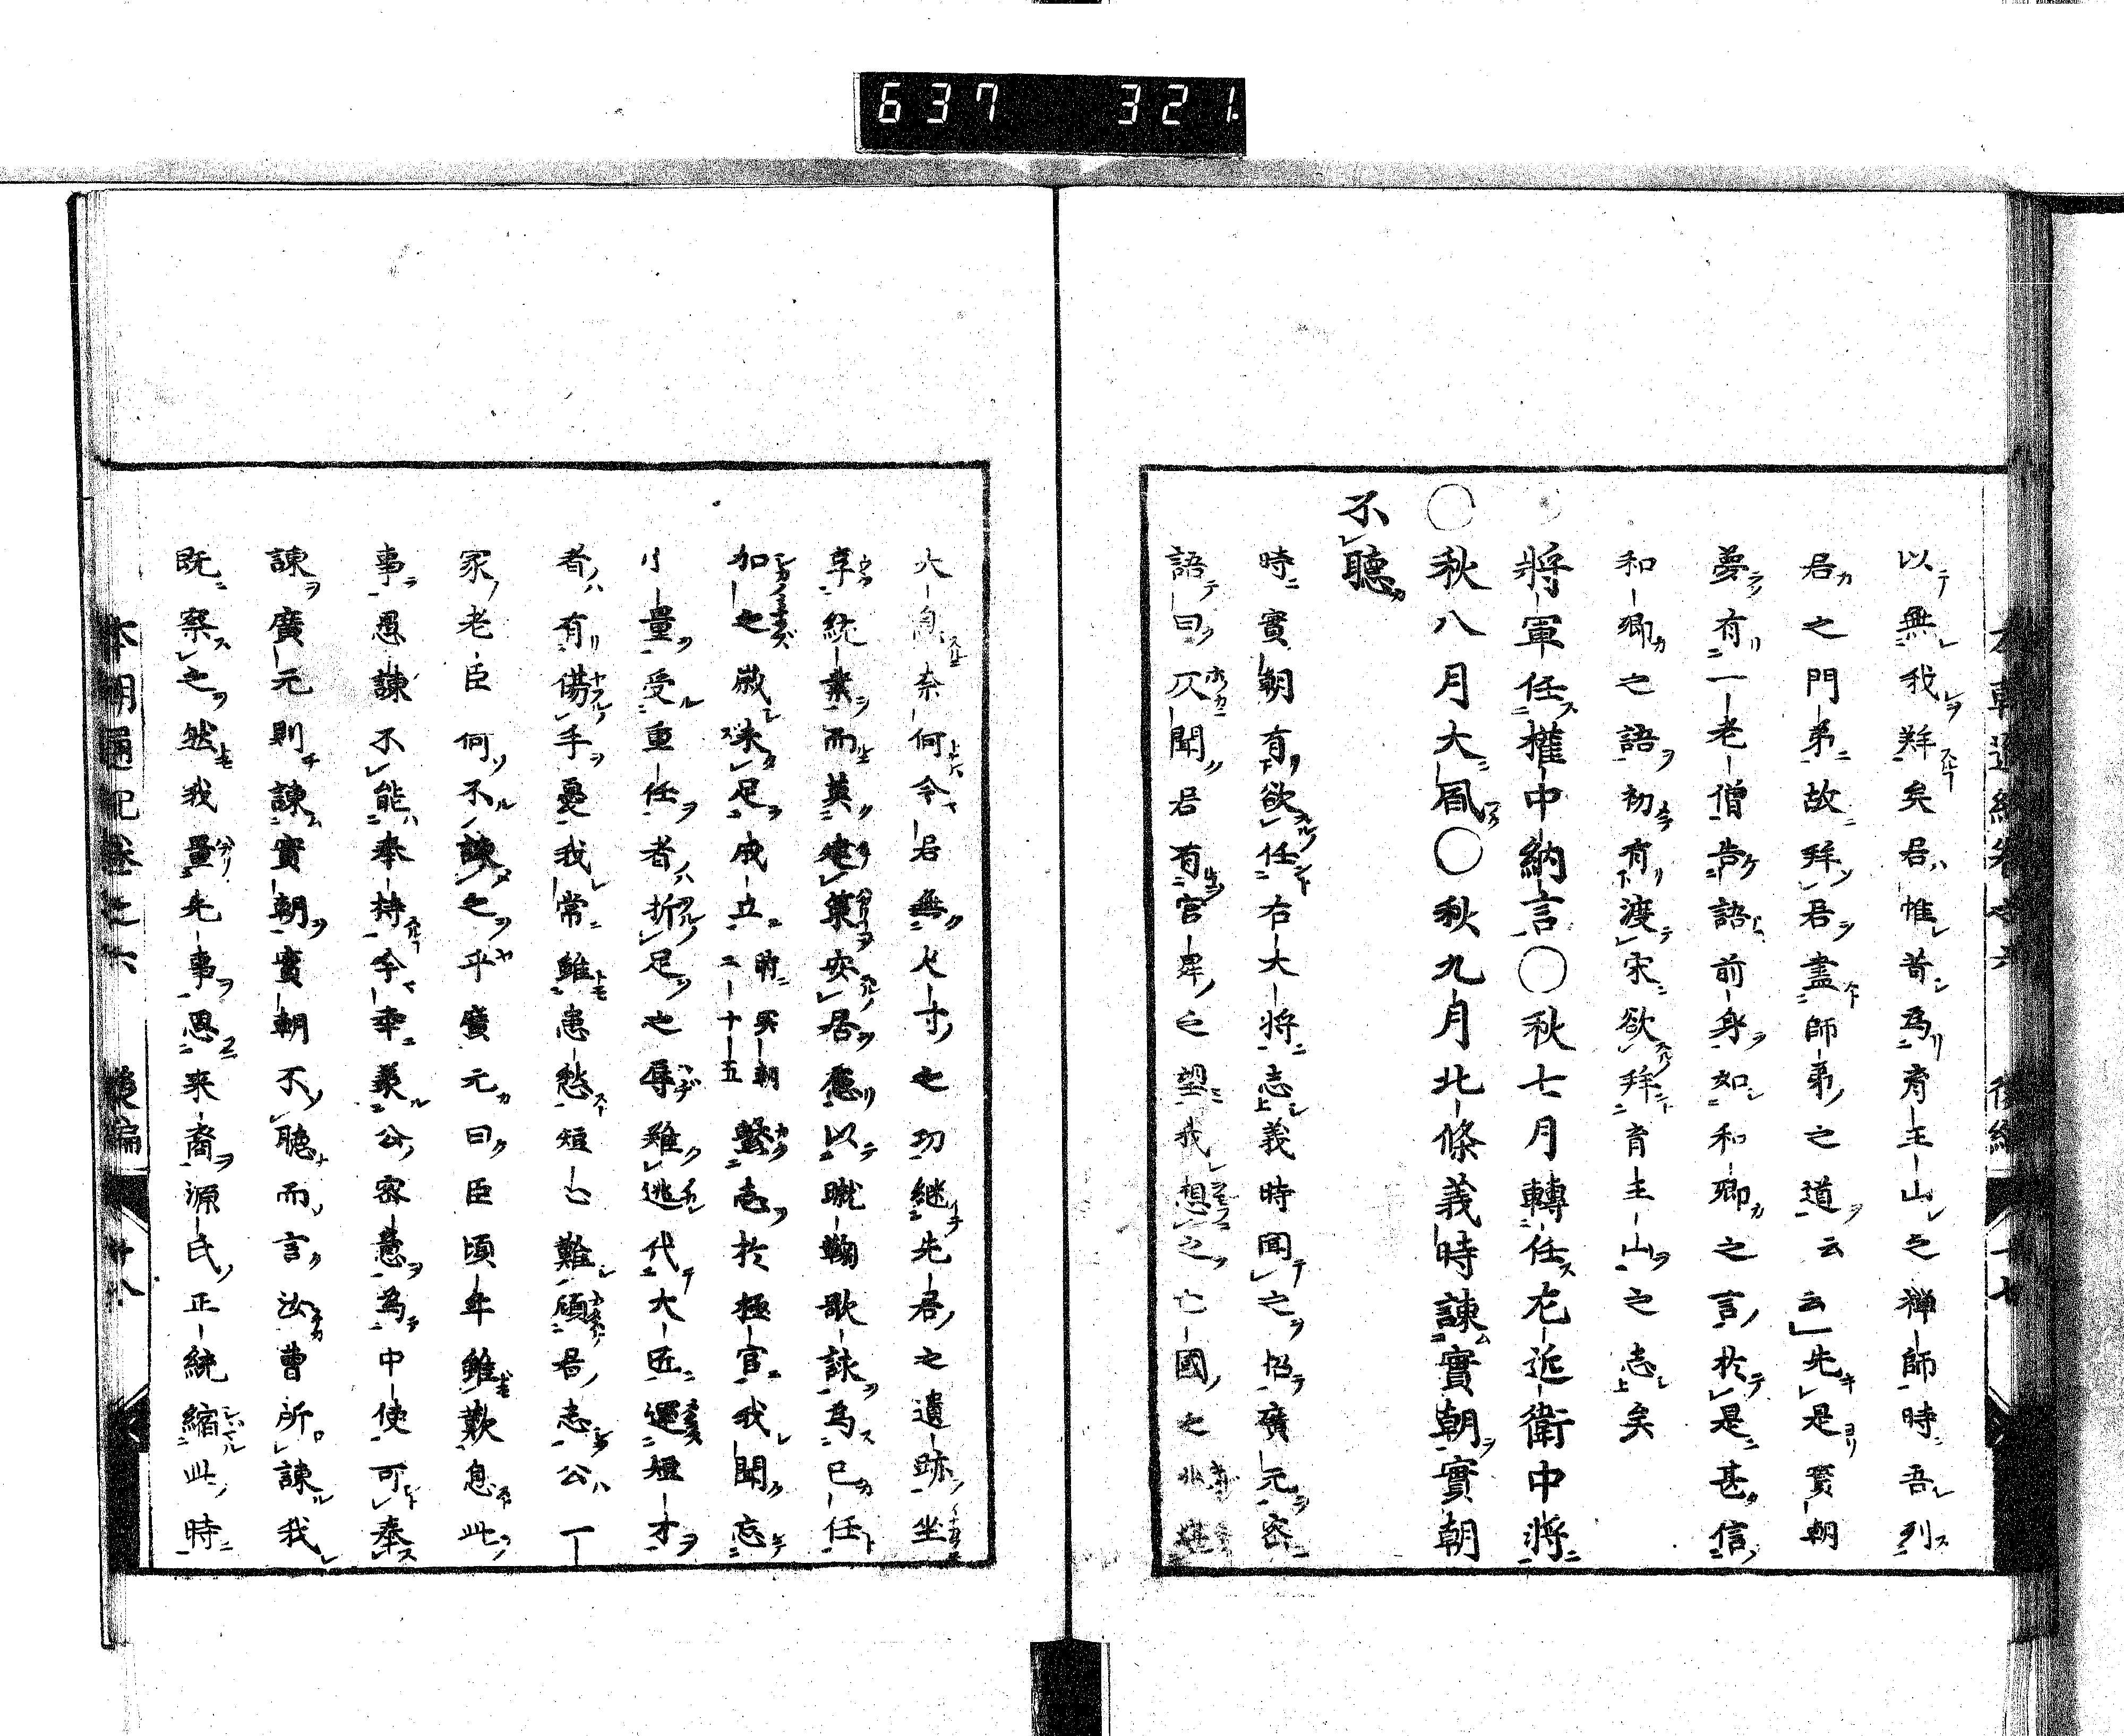 637 321
以無我拜矣君惟昔為育王山之禅師時吾列
君之門弟故拜君盡師弟之道云云先是實朝
夢有一老僧告語前身如和卿之言於是甚信
和卿之語初有渡宋欲拜育王山之志矣
將軍任權中納言〇秋七月轉任左近衛中將
〇秋八月大風〇秋九月北條義時諫實朝實朝
不聽
時實朝有欲任右大将志義時聞之招廣元密
語曰仄聞君有官昇之望我想之亡國之
大息奈何令君無尺寸之功継先君之遺跡坐
享統業而莫建策安居應以蹴鞠歌詠為己任
加之嵗未足成立時実朝二十五繫志於極官我聞忘
小量受重任者折足之辱難逃代大匠運短才
者有傷手憂我常雖患愁短亡難傾君志公一
家老臣何不諫之乎廣元曰臣頃年雖歎息此
事愚諫不能奉持今幸蒙公密意為中使可奉
諫廣元則諫實朝實朝不聽而言汝曹所諫我
既察之然我量先事思来裔源氏正統縮此時
本朝通紀卷之六 後編 廿八